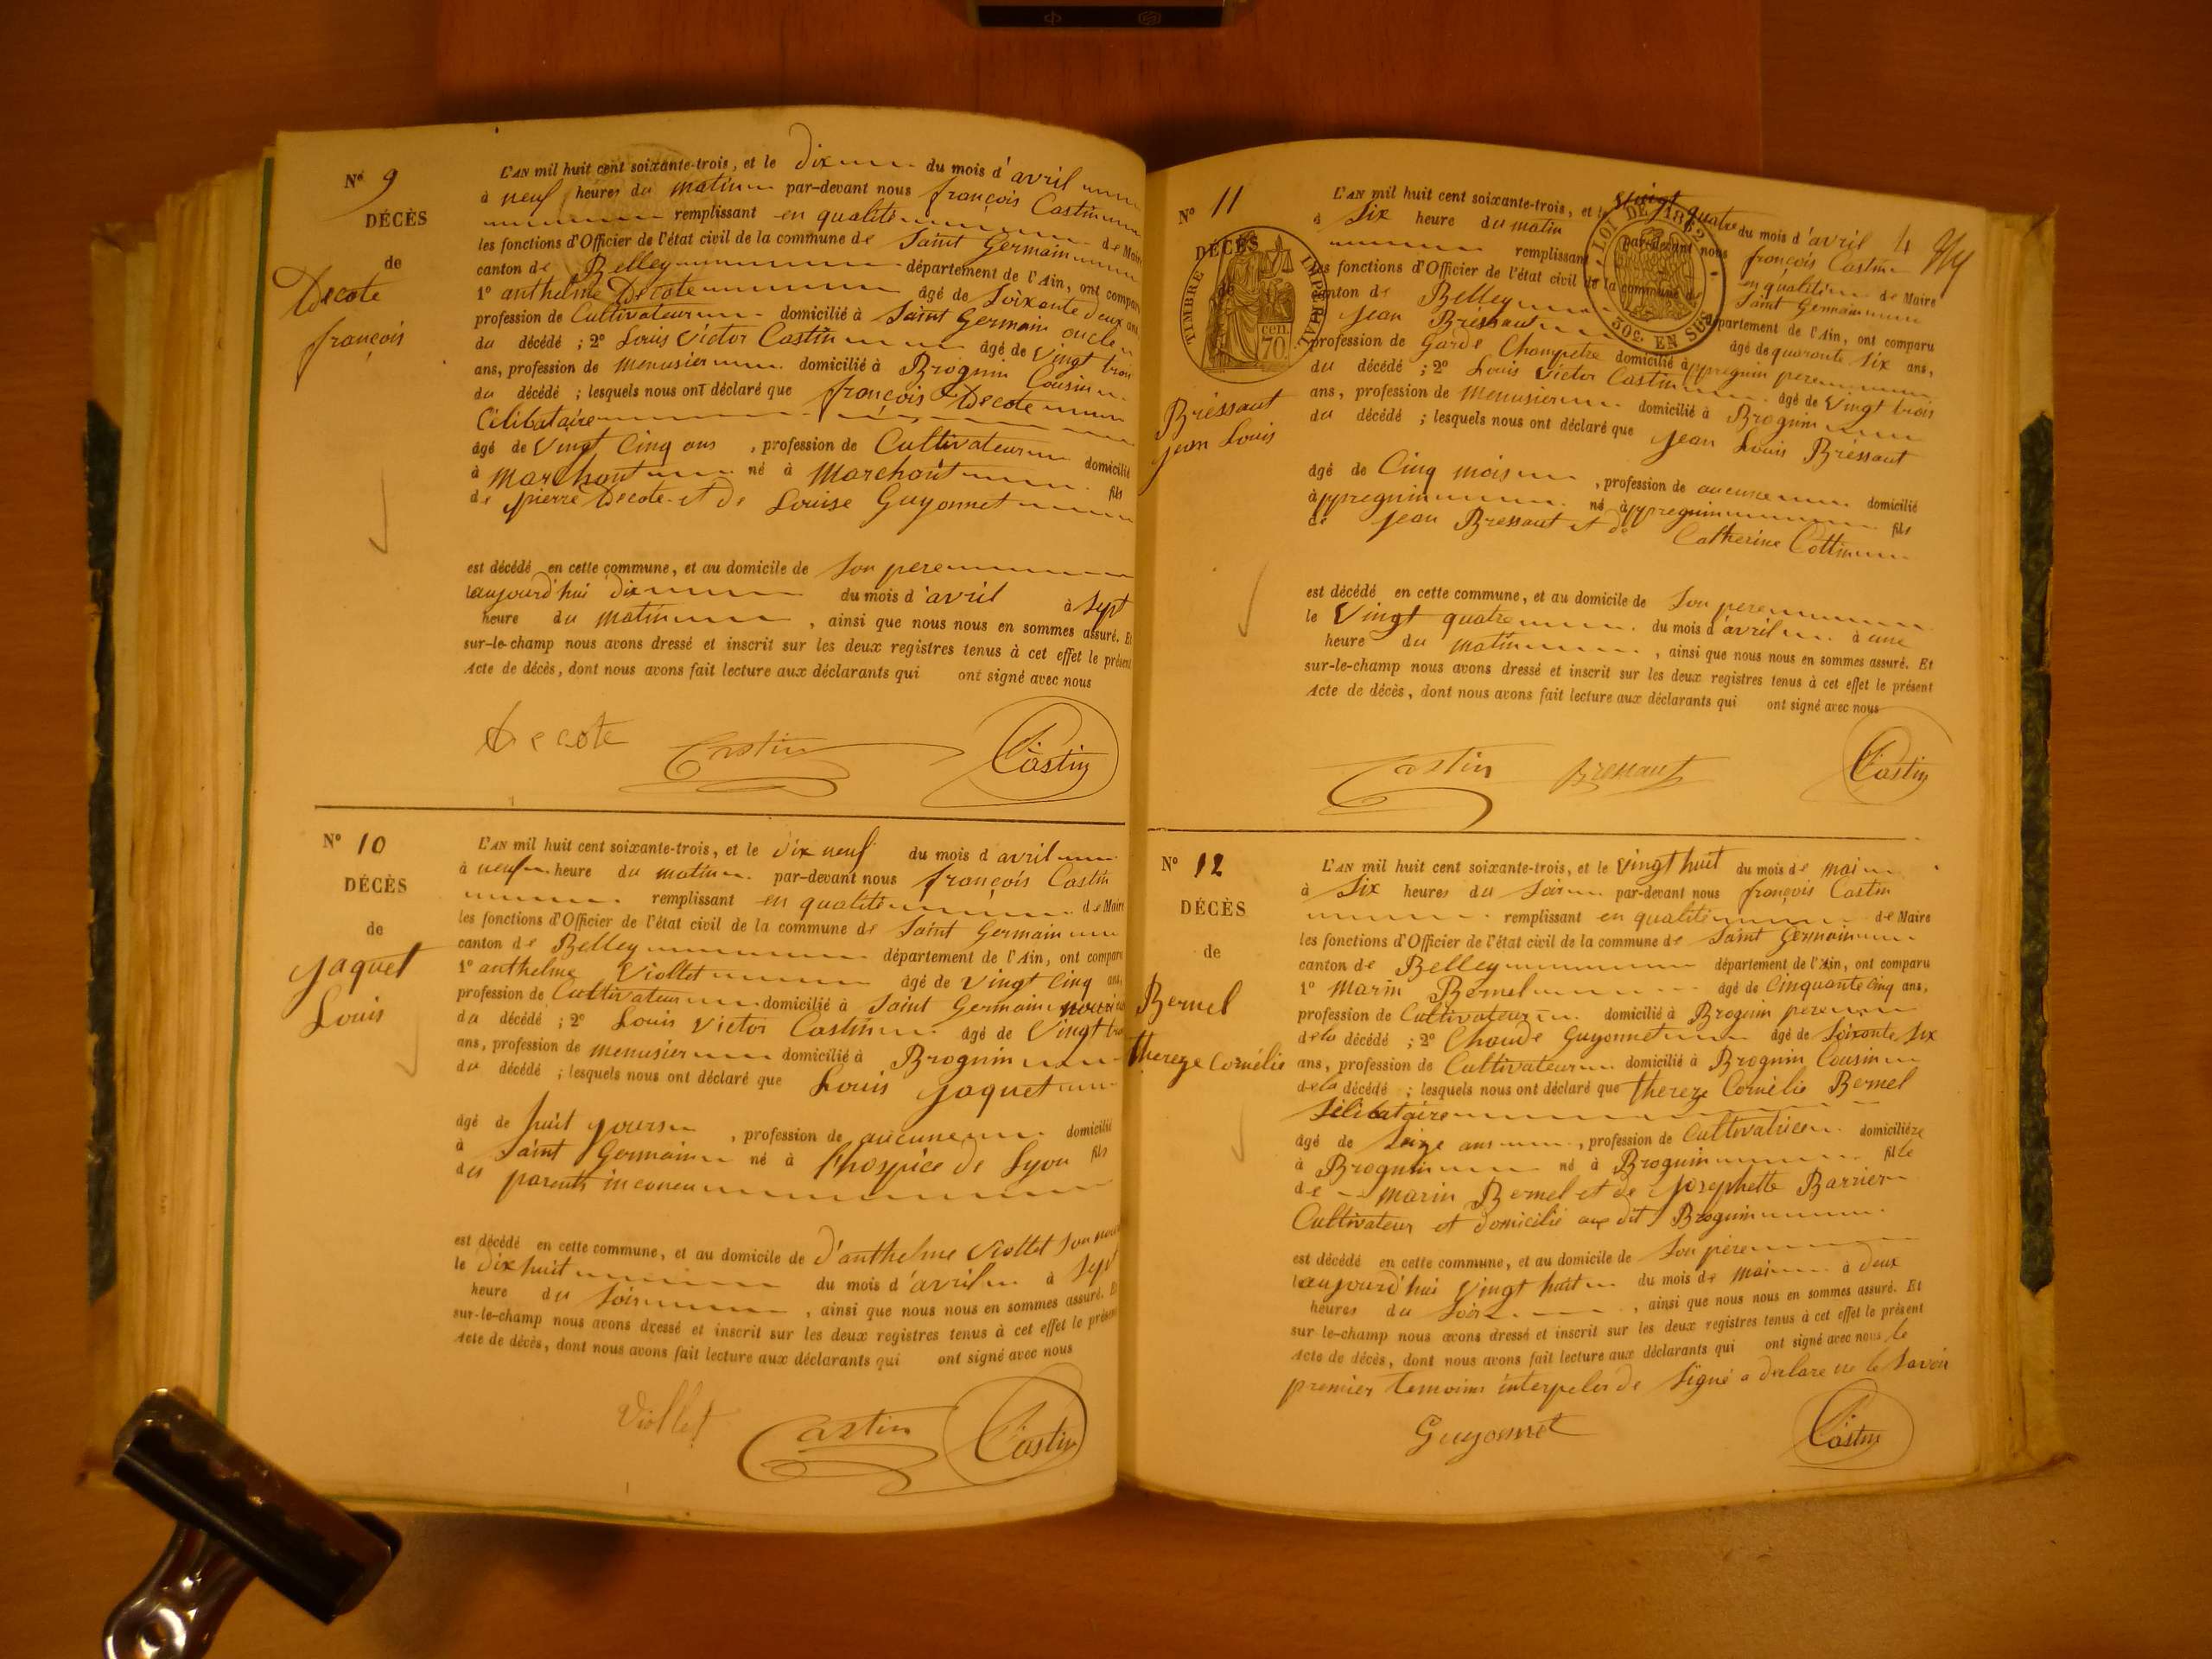 N° 9
DÉCÈS
de
Decote
françois
L'AN mil huit cent soixante-trois, et le dix du mois d'avril
à neuf heures du matin par-devant nous françois Castin
remplissant en qualité de Maire
les fonctions d'Officier de l'état civil de la commune de Saint Germain
canton de Belley département de l'Ain, ont comparu
1° anthelme Decote âgé de Soixante deux ans
profession de Cultivateur domicilié à Saint Germain oncle
du décédé ; 2° Louis Victor Castin âgé de vingt trois
ans, profession de menusier domicilié à Brognin Cousin
du décédé ; lesquels nous ont déclaré que françois Decote
Célibataire
âgé de vingt Cinq ans , profession de Cultivateur domicilié
à Marchont né à Marchont fils
de pierre Decote et de Louise Guyonnet
est décédé en cette commune, et au domicile de Son pere
l'aujourd'hui dix du mois d'avril à Sept
heure du matin , ainsi que nous nous en sommes assuré. Et
sur-le-champ nous avons dressé et inscrit sur les deux registres tenus à cet effet le présent
Acte de décès, dont nous avons fait lecture aux déclarants qui ont signé avec nous
Decote Castin Castin
N° 10
DÉCÈS
de
Jaquet
Louis
L'AN mil huit cent soixante-trois, et le dix neuf du mois d'avril
à neuf heure du matin par-devant nous françois Castin
remplissant en qualité de Maire
les fonctions d'Officier de l'état civil de la commune de Saint Germain
canton de Belley département de l'Ain, ont comparu
1° anthelme Viollet âgé de vingt Cinq ans,
profession de Cultivateur domicilié à Saint Germain
du décédé ; 2° Louis Victor Castin âgé de Vingt
ans, profession de menusier domicilié à Brognin
du décédé ; lesquels nous ont déclaré que Louis Jaquet
âgé de huit jours , profession de aucune domicilié
à Saint Germain né à l'hospice de Lyon fils
des parents inconeu
est décédé en cette commune, et au domicile de d'anthelme Viollet Son
le dix huit du mois d'avril à Sept
heure du Soir , ainsi que nous nous en sommes assuré. Et
sur-le-champ nous avons dressé et inscrit sur les deux registres tenus à cet effet le présent
Acte de décès, dont nous avons fait lecture aux déclarants qui ont signé avec nous
Viollet Castin Castin
N° 11
DÉCÈS
de
Bressaut
jean Louis
TIMBRE IMPERIAL
70 cen.
LOI DE 1862
30c. EN SUS
4
L'AN mil huit cent soixante-trois, et le vingt quatre du mois d'avril
à Six heure du matin par-devant nous françois Castin
remplissant en qualité de Maire
les fonctions d'Officier de l'état civil de la commune de Saint Germain
canton de Belley département de l'Ain, ont comparu
Jean Bressaut âgé de quaronte Six ans,
profession de Garde Champetre domicilié à appregnin pere
du décédé ; 2° Louis Victor Castin âgé de Vingt trois
ans, profession de menusier domicilié à Brognin
du décédé ; lesquels nous ont déclaré que Jean Louis Bressaut
âgé de Cinq mois , profession de aucune domicilié
à appregnin né à appregnin fils
de Jean Bressaut et de Catherine Cottin
est décédé en cette commune, et au domicile de Son pere
le Vingt quatre du mois d'avril à une
heure du matin , ainsi que nous nous en sommes assuré. Et
sur-le-champ nous avons dressé et inscrit sur les deux registres tenus à cet effet le présent
Acte de décès, dont nous avons fait lecture aux déclarants qui ont signé avec nous
Castin Bressaut Castin
N° 12
DÉCÈS
de
Bernel
thereze Cornélie
L'AN mil huit cent soixante-trois, et le vingt huit du mois de mai
à Six heures du Soir par-devant nous françois Castin
remplissant en qualité de Maire
les fonctions d'Officier de l'état civil de la commune de Saint Germain
canton de Belley département de l'Ain, ont comparu
1° Marin Bernel âgé de Cinquante Cinq ans,
profession de Cultivateur domicilié à Brognin pere
de la décédé ; 2° Claude Guyonnet âgé de Soixonte Six
ans, profession de Cultivateur domicilié à Brognin Cousin
de la décédé ; lesquels nous ont déclaré que thereze Cornélie Bernel
Sélibataire
âgé de Seize ans , profession de Cultivatrice domiciliéze
à Brognin né à Brognin fille
de Marin Bernel et de Josephette Barrier
Cultivateur et domicilié aux dit Brognin
est décédé en cette commune, et au domicile de Son père
l'aujourd'hui Vingt huit du mois de mai à deux
heures du Soir , ainsi que nous nous en sommes assuré. Et
sur-le-champ nous avons dressé et inscrit sur les deux registres tenus à cet effet le présent
Acte de décès, dont nous avons fait lecture aux déclarants qui ont signé avec nous le
premier temoins interpeler de Signé a déclare ne le Savoir
Guyonnet Castin